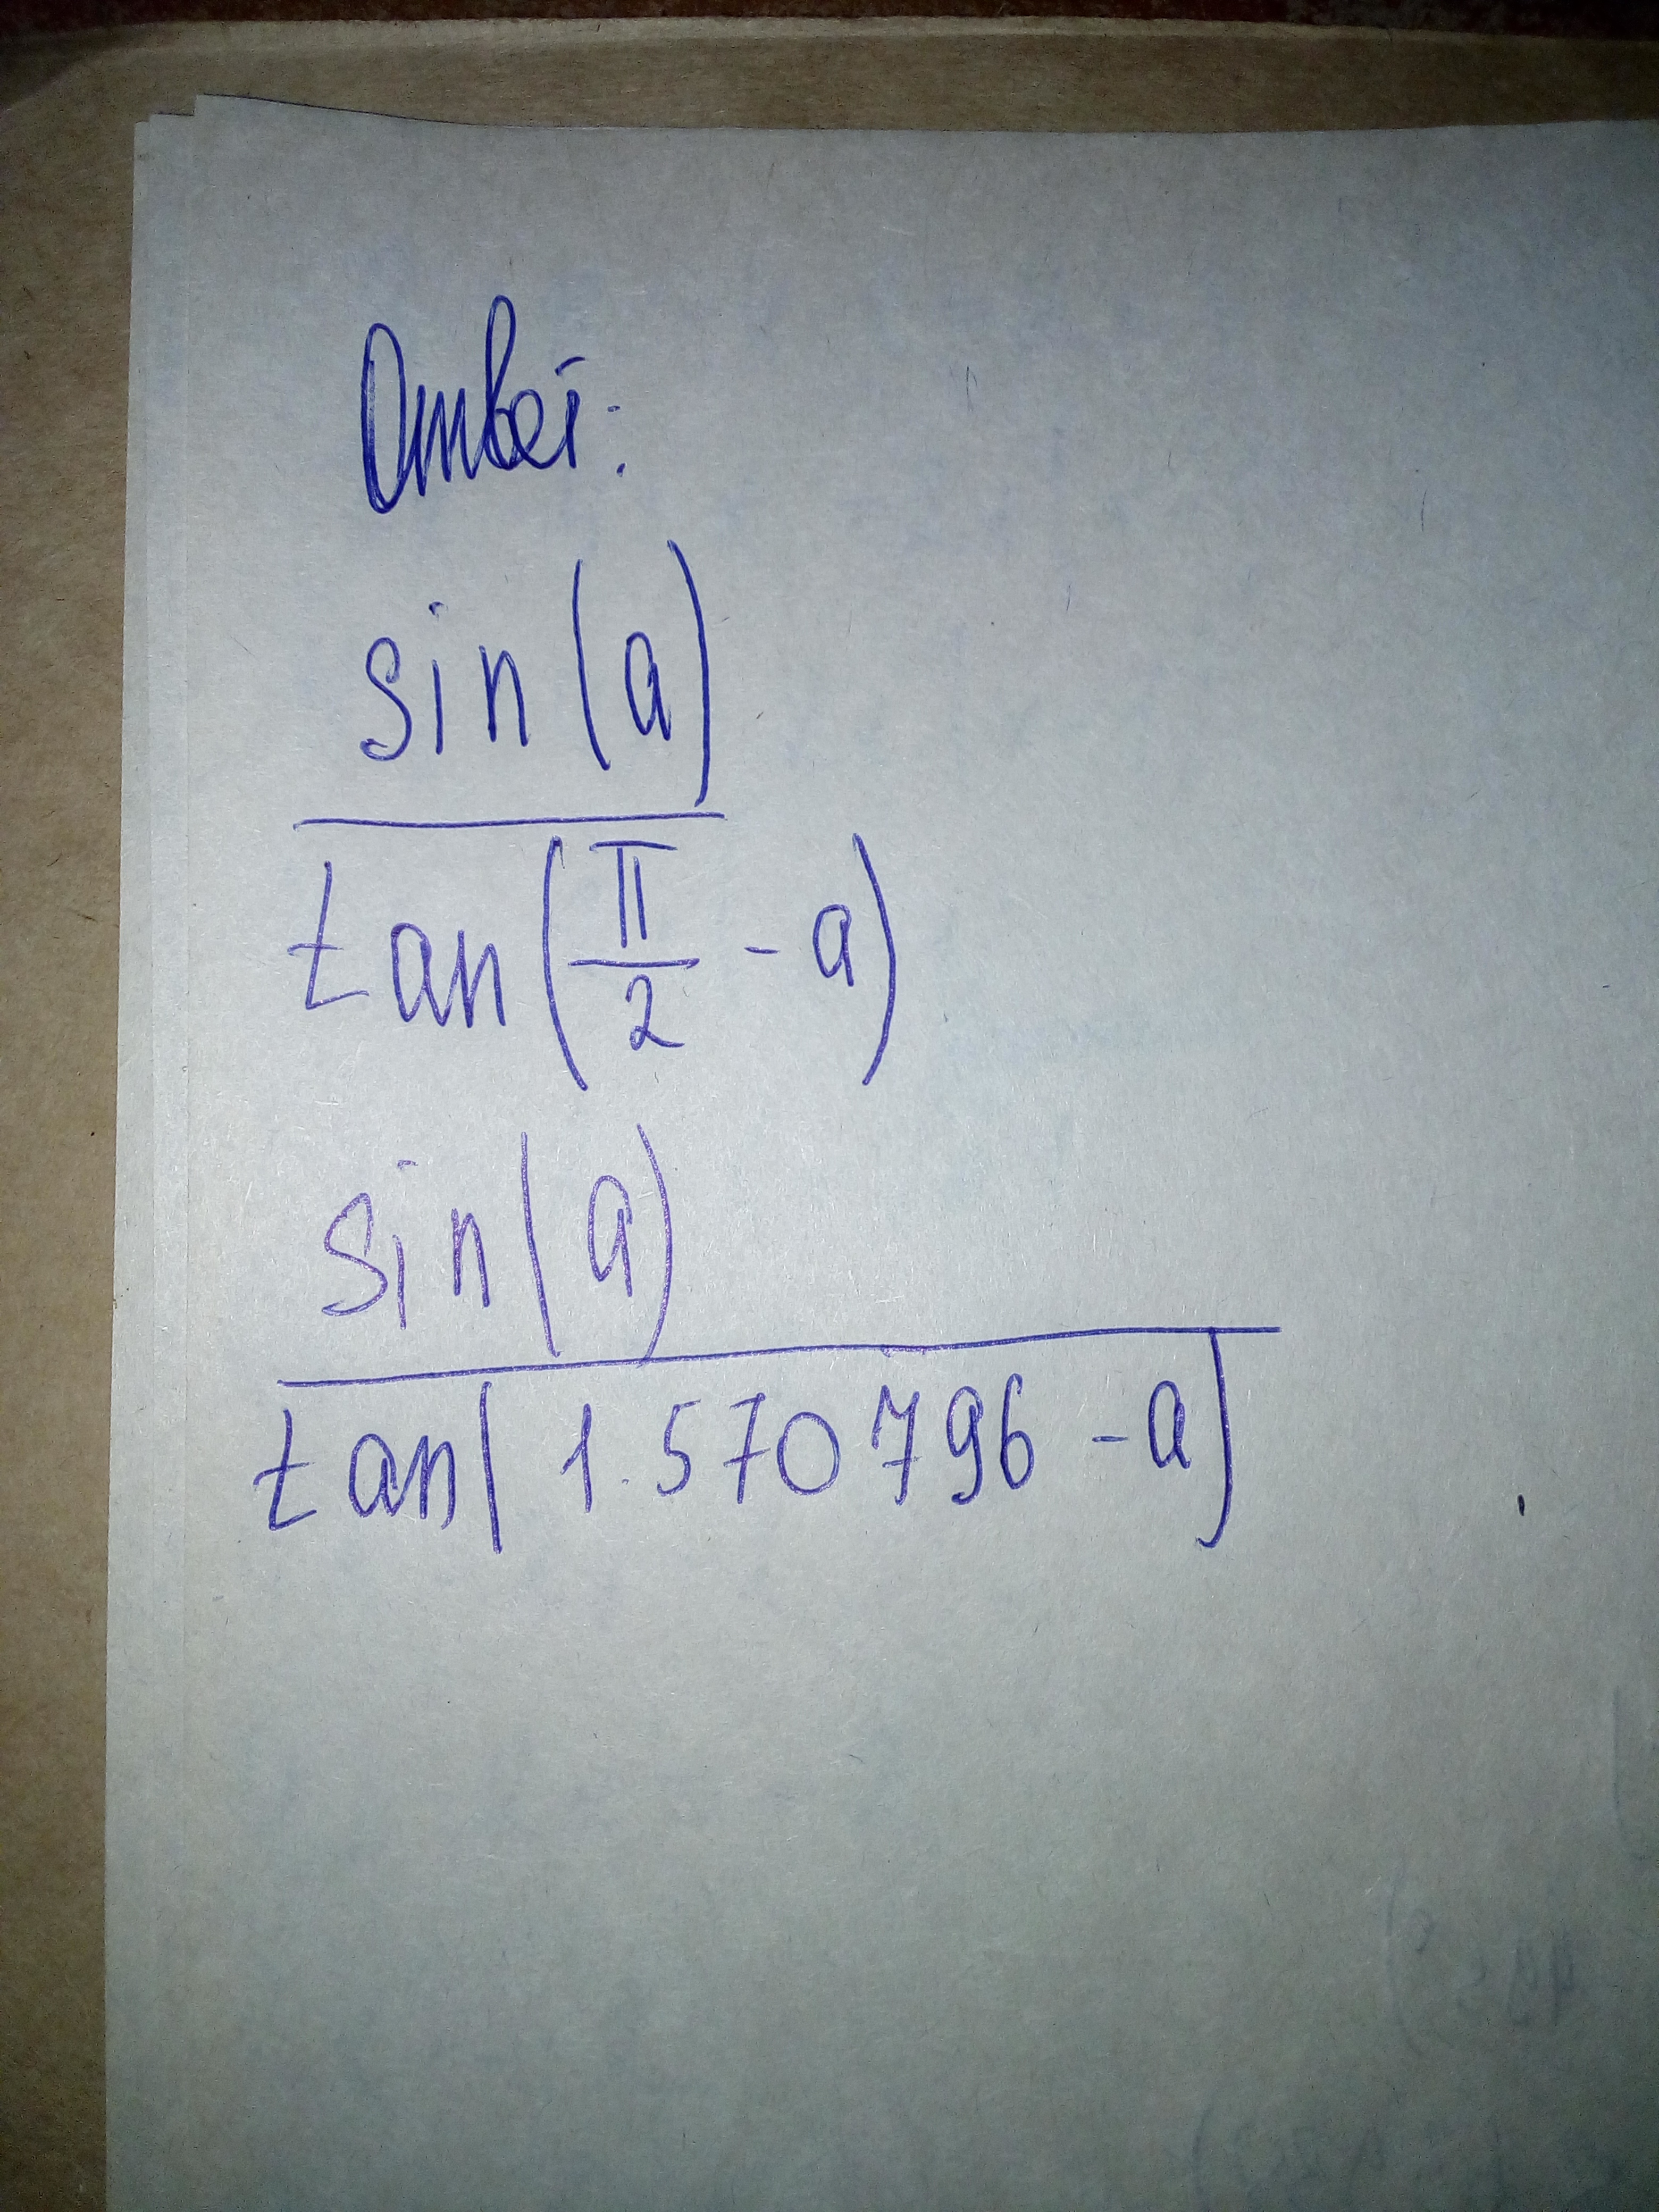 Ответ:
sin(a)
tan(π/2 - a)
sin(a)
tan(1.570796 - a)